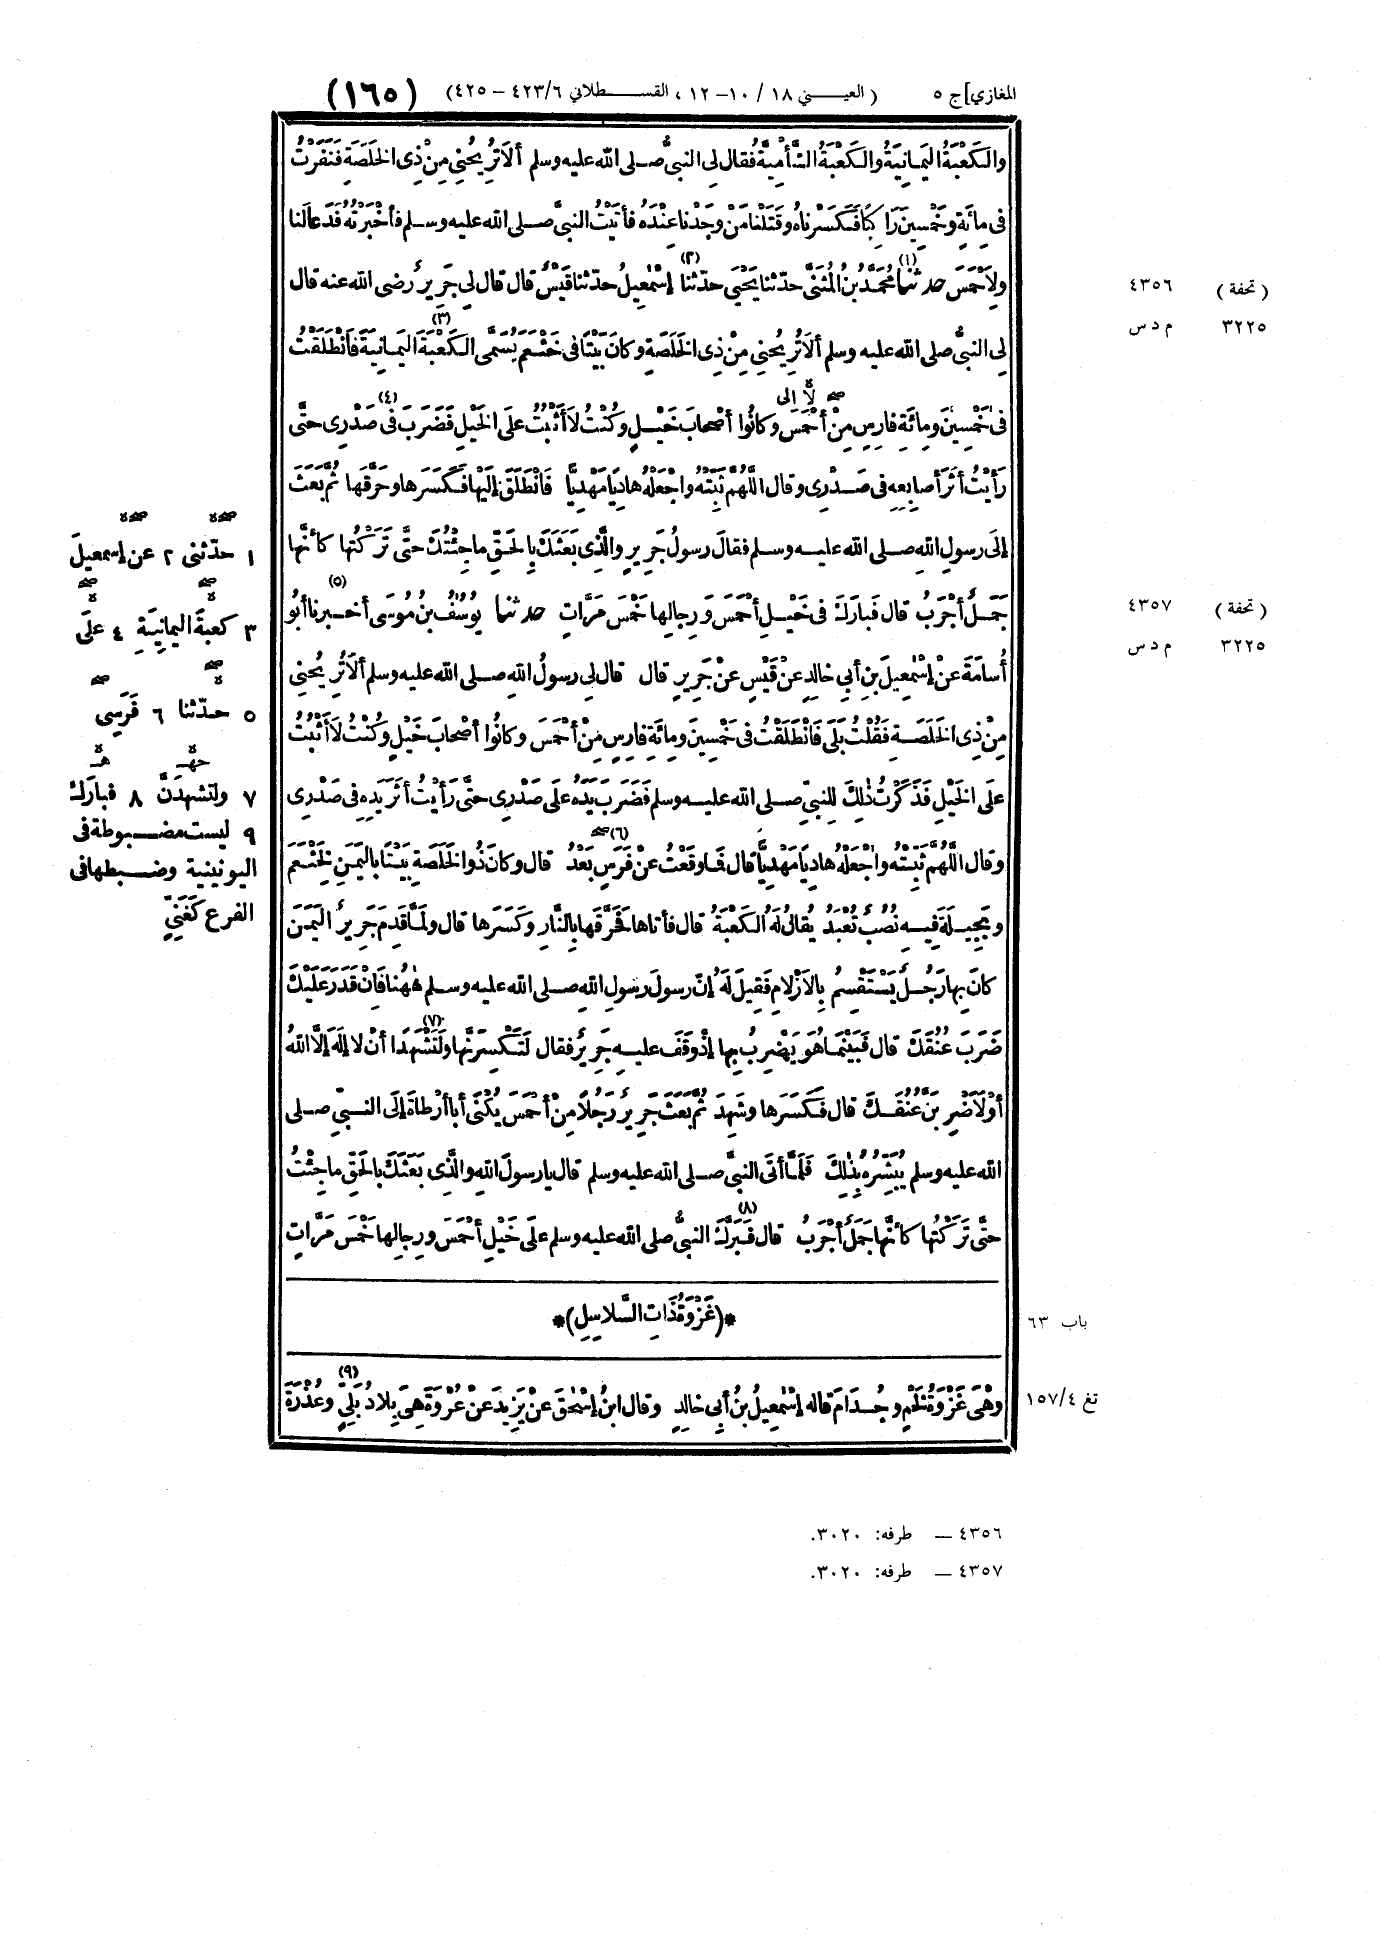 المغازي] ج ٥ ( العيـــني ١٨ / ١٠ - ١٢ ، القســـطلاني ٦/ ٤٢٣ - ٤٢٥) (١٦٥)
والكَعْبَةُ اليَمَانِيَةُ والكَعْبَةُ الشَّأْمِيَّةُ فقال لِى النبىُّ صلى الله عليه وسلم ألاَ تُرِيحُنِى مِنْ ذِى الخَلَصَةِ فَنَفَرْتُ
فى مِائَةٍ وخَمْسِينَ رَاكِبًا فَكَسَرْناهُ وقَتَلْنا مَنْ وجَدْنا عِنْدَهُ فأَتَيْتُ النبىَّ صلى الله عليه وسلم فأَخْبَرْتُه فَدَعا لَنا
ولِأَحْمَسَ حدثنا (١) مُحَمَّدُ بنُ المُثَنَّى حدّثنا يَحْيَى حدّثنا (٢) إسْمٰعِيلُ حدّثنا قَيْسٌ قال قال لِى جَرِيرٌ رضى الله عنه قال
لِى النبىُّ صلى الله عليه وسلم ألاَ تُرِيحُنِى مِنْ ذِى الخَلَصَةِ وكانَ بَيْتًا فى خَثْعَمَ يُسَمَّى الكَعْبَةَ (٣) اليَمانِيَةَ فَانْطَلَقْتُ
فى خَمْسِينَ ومِائَةِ فارِسٍ مِنْ أَحْمَسَ وكانُوا أَصْحابَ خَيْلٍ وكُنْتُ لا أَثْبُتُ علَى الخَيْلِ فَضَرَبَ فى (٤) صَدْرِى حتَّى
رَأَيْتُ أثَرَ أصابِعِه فى صَدْرِى وقال اللَّهُمَّ ثَبِّتْهُ واجْعَلْهُ هادِيًا مَهْدِيًّا فَانْطَلَقَ إلَيْها فَكَسَرَها وحَرَّقَها ثُمَّ بَعَثَ
إلَى رسولِ اللهِ صلى الله عليه وسلم فقالَ رسولُ جَرِيرٍ والَّذِى بَعَثَكَ بِالحَقِّ ما جِئْتُكَ حتَّى تَرَكْتُها كأَنَّها
جَمَلٌ أَجْرَبُ قال فَبارَكَ فى خَيْلِ أَحْمَسَ ورِجالِها خَمْسَ مَرَّاتٍ حدثنا يُوسُفُ بنُ مُوسَى أخبرنا (٥) أَبُو
أُسامَةَ عَنْ إسْمٰعِيلَ بنِ أبِى خالِدٍ عَنْ قَيْسٍ عَنْ جَرِيرٍ قال قال لِى رسولُ اللهِ صلى الله عليه وسلم ألاَ تُرِيحُنِى
مِنْ ذِى الخَلَصَةِ فَقُلْتُ بَلَى فَانْطَلَقْتُ فى خَمْسِينَ ومِائَةِ فارِسٍ مِنْ أَحْمَسَ وكانُوا أَصْحابَ خَيْلٍ وكُنْتُ لا أَثْبُتُ
علَى الخَيْلِ فَذَكَرْتُ ذٰلِكَ لِلنبىِّ صلى الله عليه وسلم فَضَرَبَ يَدَهُ علَى صَدْرِى حتَّى رَأَيْتُ أثَرَ يَدِهِ فى صَدْرِى
وقال اللَّهُمَّ ثَبِّتْهُ واجْعَلْهُ هادِيًا مَهْدِيًّا قال فما وقَعْتُ عنْ فَرَسٍ (٦) بَعْدُ قال وكانَ ذُو الخَلَصَةِ بَيْتًا بِاليَمَنِ لِخَثْعَمَ
وبَجِيلَةَ فِيهِ نُصُبٌ تُعْبَدُ يُقالُ لَهُ الكَعْبَةُ قال فأَتاها فَحَرَّقَها بِالنَّارِ وكَسَرَها قال ولَمَّا قَدِمَ جَرِيرٌ اليَمَنَ
كانَ بِها رَجُلٌ يَسْتَقْسِمُ بِالأَزْلامِ فَقِيلَ لَهُ إنّ رسولَ رسولِ اللهِ صلى الله عليه وسلم هٰهُنا فَإنْ قَدَرَ عَلَيْكَ
ضَرَبَ عُنُقَكَ قال فَبَيْنَما هُوَ يَضْرِبُ بِها إذْ وقَفَ عليهِ جَرِيرٌ فقال لَتَكْسِرَنَّها ولَتَشْهَدًا (٧) أنْ لا إلَهَ إلَّا اللهُ
أَوْ لَأَضْرِبَنَّ عُنُقَكَ قال فَكَسَرَها وشَهِدَ ثُمَّ بَعَثَ جَرِيرٌ رَجُلًا مِنْ أَحْمَسَ يُكْنَى أبا أرْطاةَ إلَى النبىِّ صلى
الله عليه وسلم يُبَشِّرُهُ بِذٰلِكَ فَلَمَّا أتَى النبىَّ صلى الله عليه وسلم قال يا رسولَ اللهِ والَّذِى بَعَثَكَ بِالحَقِّ ما جِئْتُ
حتَّى تَرَكْتُها كأَنَّها جَمَلٌ أَجْرَبُ قال فَبَرَّكَ (٨) النبىُّ صلى الله عليه وسلم علَى خَيْلِ أَحْمَسَ ورِجالِها خَمْسَ مَرَّاتٍ
*(غَزْوَةُ ذَاتِ السَّلاسِلِ)*
وهْىَ غَزْوَةُ لَخْمٍ وجُذَامَ قاله إسْمٰعِيلُ بنُ أبِى خالِدٍ وقال ابنُ إسْحٰقَ عَنْ يَزِيدَ عَنْ عُرْوَةَ هِىَ بِلادُ بَلِىٍّ (٩) وعُذْرَةَ
( تحفة ) ٤٣٥٦
٣٢٢٥ م د س
( تحفة ) ٤٣٥٧
٣٢٢٥ م د س
باب ٦٣
تغ ٤/ ١٥٧
١ حدّثنى ٢ عن إسمعيلَ
٣ كعبةَ اليمانِيَةِ ٤ علَى
٥ حدّثنا ٦ فَرَسِى
٧ ولتشهدَنَّ ٨ فبارَك
٩ ليست مضبوطة فى
اليونينية وضبطها فى
الفرع كَغَنِىٍّ
٤٣٥٦ — طرفه: ٣٠٢٠.
٤٣٥٧ — طرفه: ٣٠٢٠.